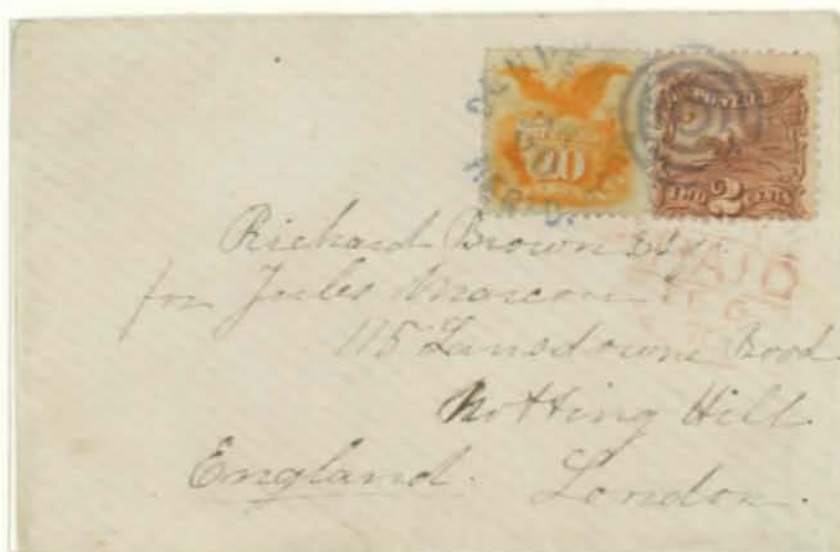 10
POSTAGE
TWO 2 CENTS
PAID
Richard Brown Esqr
for Jules Marcou
115 Lansdowne Road
Notting Hill
England. London.